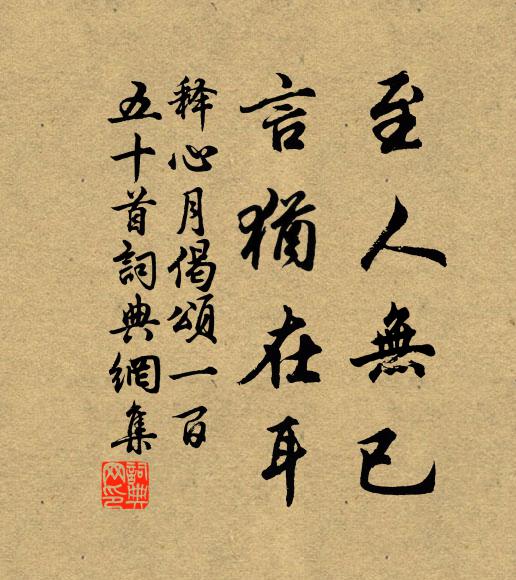 至人無已
言猶在耳
释心月偈頌一百
五十首詞典網集
詞典網印